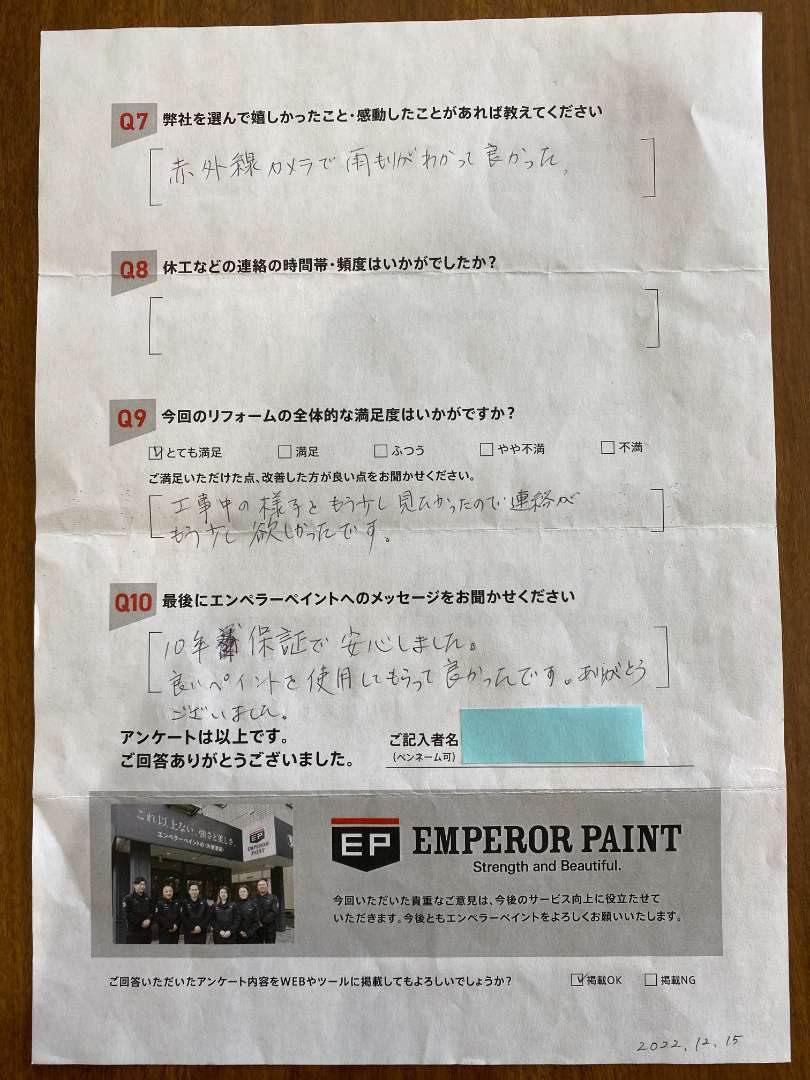 Q7 弊社を選んで嬉しかったこと・感動したことがあれば教えてください
赤外線カメラで雨もりがわかって良かった。
Q8 休工などの連絡の時間帯・頻度はいかがでしたか?
Q9 今回のリフォームの全体的な満足度はいかがですか?
とても満足 満足 ふつう やや不満 不満
ご満足いただけた点、改善した方が良い点をお聞かせください。
工事中の様子ともう少し見たかったので連絡が
もう少し欲しかったです。
Q10 最後にエンペラーペイントへのメッセージをお聞かせください
10年保証で安心しました。
良いペイントを使用してもらって良かったです。ありがとう
ございました。
アンケートは以上です。
ご回答ありがとうございました。
ご記入者名
(ペンネーム可)
これ以上ない、強さと美しさ。
エンペラーペイントの
EMPEROR
PAINT
EP EMPEROR PAINT
Strength and Beautiful.
今回いただいた貴重なご意見は、今後のサービス向上に役立たせて
いただきます。今後ともエンペラーペイントをよろしくお願いいたします。
ご回答いただいたアンケート内容をWEBやツールに掲載してもよろしいでしょうか? 掲載OK 掲載NG
2022.12.15